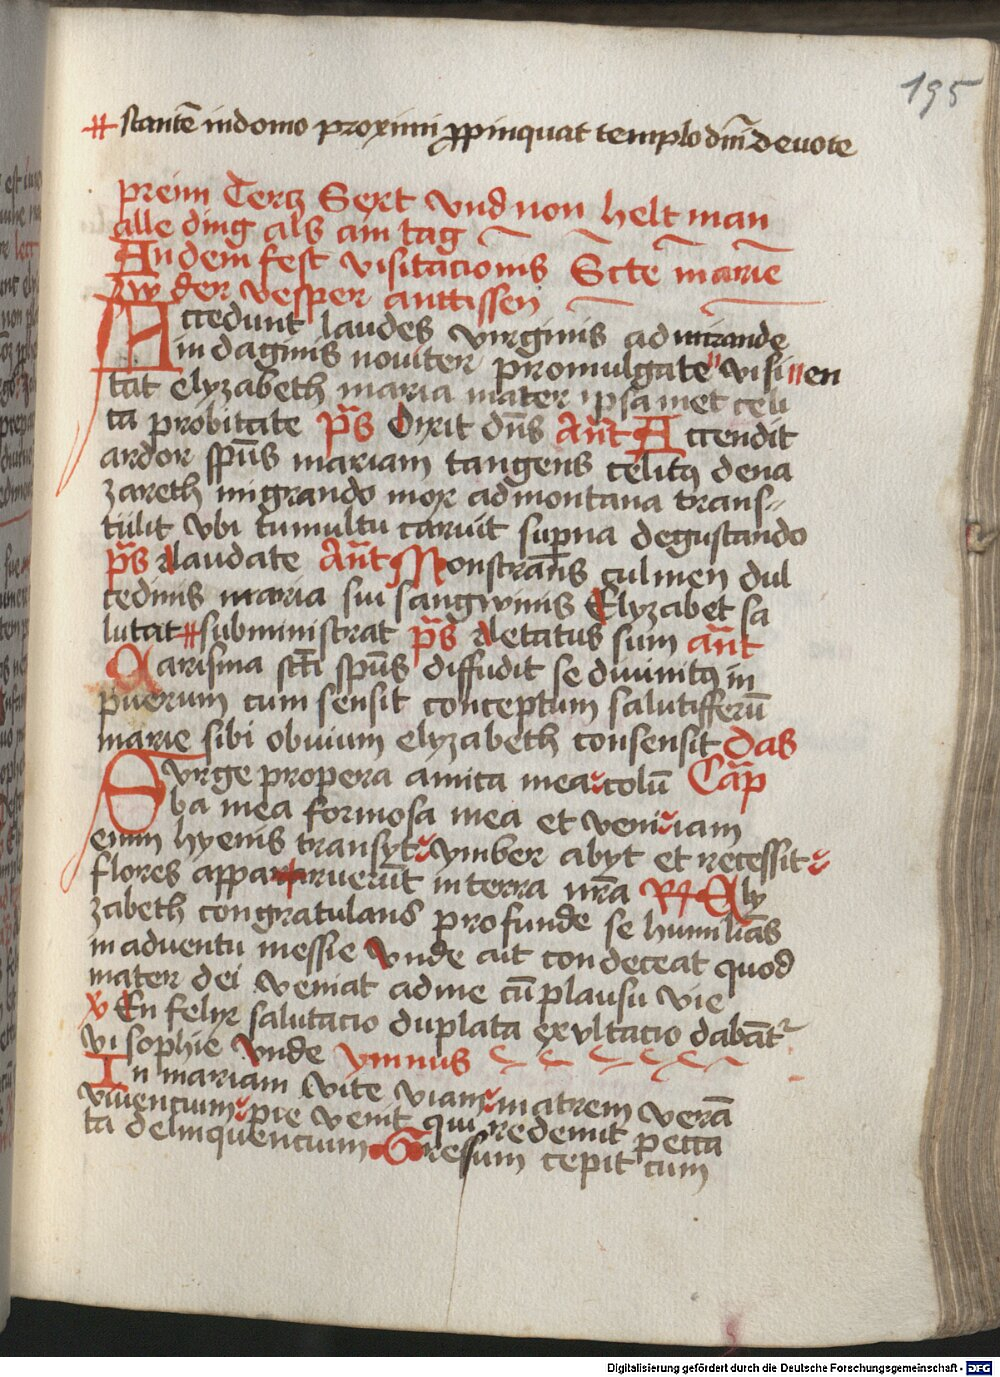 195
stantē in domo proximi ꝓpinquat templo dn̄i deuote
preim Tertz Sext vnd non helt man
alle ding als ain tag
An dem fest visitacionis Scte marie
zw der vesper anttissen
Accedunt laudes virginis admirande
indaginis nouiter promulgate visi en
tat elyzabeth maria mater ipsamet celi
ca probitate pͣs Dixit dn̄s An̄t Accendit
ardor sp̄us mariam tangens celitꝰ de na
zareth migrando mox ad montana trans-
tulit vbi tumultu caruit suꝑna degustando
pͣs laudate An̄t Monstrans culmen dul
cedinis maria sui sangwinis Elyzabet sa
lutat subministrat pͣs letatus sum an̄t
Carisma scti sp̄us diffudit se diuinitꝰ in
puerum cum sensit conceptum salutifferū
marie sibi obuium elyzabeth consensit das
Surge propera amica mea colū Cap̄
ba mea formosa mea et veni iam
enim hyems transyt ymber abyt et recessit
flores apparuerūt in terra nr̄a R Ely
zabeth congratulans profunde se humiliās
in aduentu messie vnde ait condeceat quod
mater dei veniat ad me cū plausu vie
v En felyx salutacio duplata exultacio dabāt
vi sophie vnde ymnus
In mariam vite viam matrem verā
viuencium pie venit qui redemit pecca
ta delinquencium Gressum cepit cum
Digitalisierung gefördert durch die Deutsche Forschungsgemeinschaft - DFG